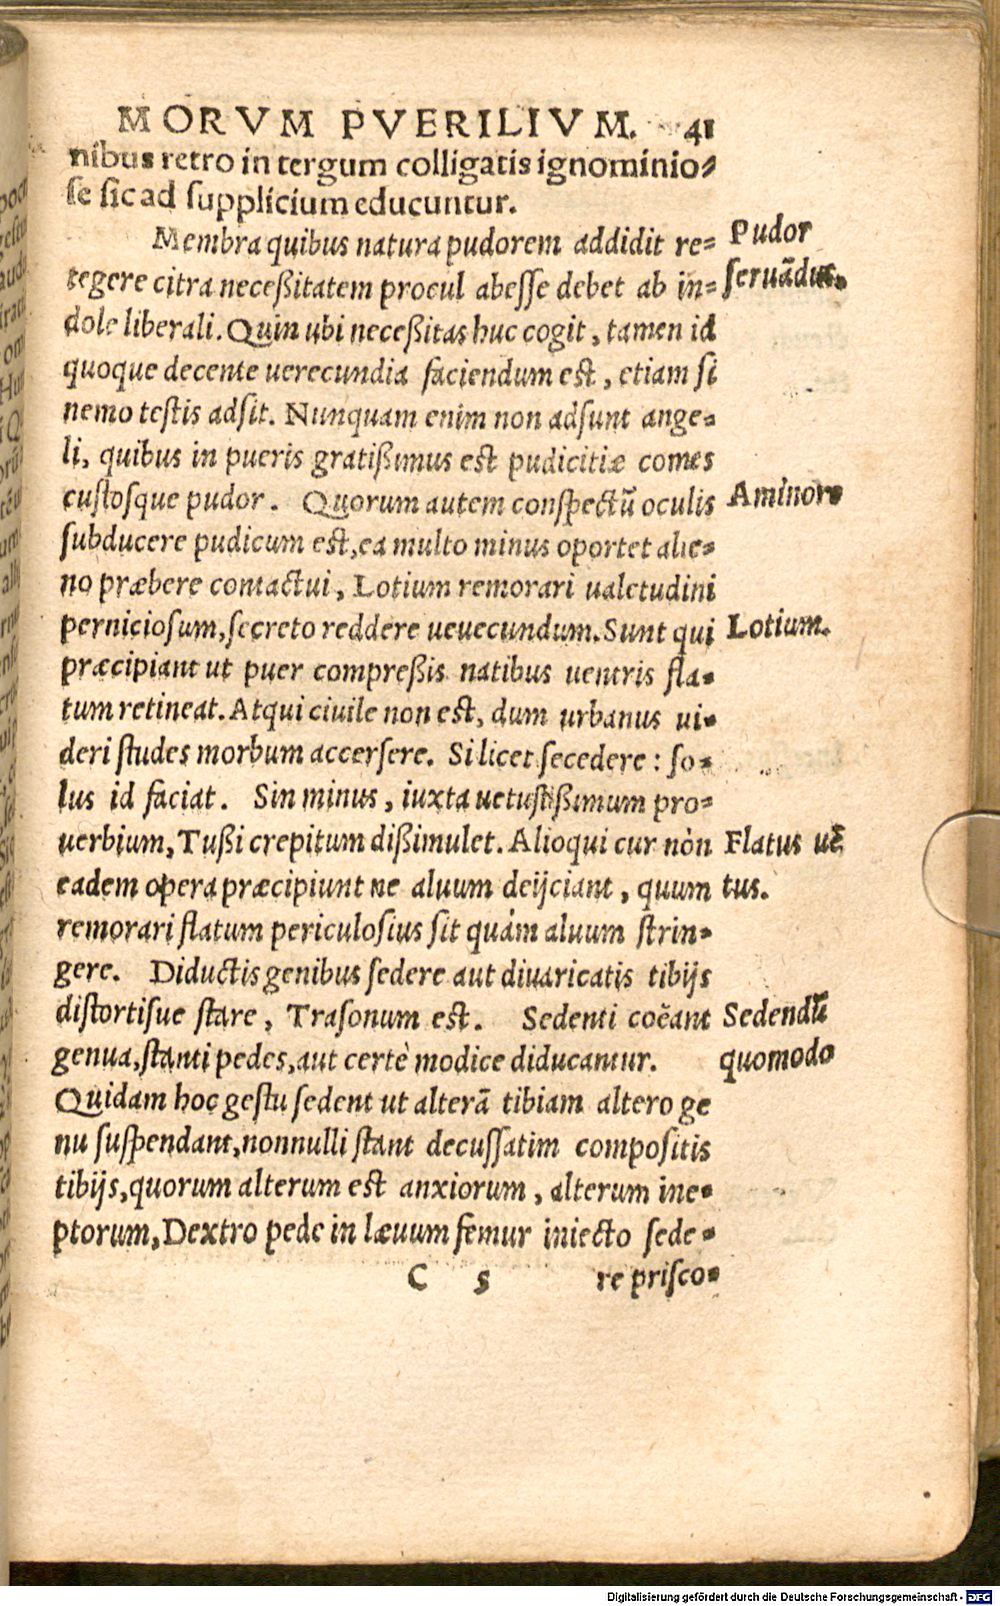 MORVM PVERILIVM. 41
nibus retro in tergum colligatis ignominio⸗
se sic ad supplicium educuntur.
Membra quibus natura pudorem addidit re⸗
tegere citra neceßitatem procul abeſſe debet ab in⸗
dole liberali. Quin ubi neceßitas huc cogit, tamen id
quoque decente uerecundia faciendum est, etiam si
nemo teſtis adſit. Nunquam enim non adſunt ange⸗
li, quibus in pueris gratißimus est pudicitiæ comes
cuſtosque pudor. Quorum autem conſpectũ oculis
ſubducere pudicum est, ea multo minus oportet alie⸗
no præbere contactui, Lotium remorari ualetudini
perniciosum, ſecreto reddere ueuecundum. Sunt qui
præcipiant ut puer compreßis natibus uentris fla⸗
tum retineat. Atqui ciuile non est, dum urbanus ui⸗
deri ſtudes morbum accerſere. Si licet ſecedere: ſo⸗
lus id faciat. Sin minus, iuxta uetuſtißimum pro⸗
uerbium, Tußi crepitum dißimulet. Alioqui cur nòn
eadem opera præcipiunt ne aluum deijciant, quum
remorari flatum periculoſius ſit quàm aluum ſtrin⸗
gere. Diductis genibus ſedere aut diuaricatis tibijs
diſtortiſue ſtare, Traſonum est. Sedenti coẽant
genua, ſtanti pedes, aut certè modice diducantur.
Quidam hoc geſtu ſedent ut alterã tibiam altero ge
nu ſuſpendant, nonnulli ſtant decuſſatim compoſitis
tibijs, quorum alterum est anxiorum, alterum ine⸗
ptorum, Dextro pede in læuum femur iniecto ſede⸗
C 5 re priſco⸗
Pudor
ſeruãdus.
A minore
Lotium.
Flatus uẽ
tus.
Sedendũ
quomodo
Digitalisierung gefördert durch die Deutsche Forschungsgemeinschaft - DFG